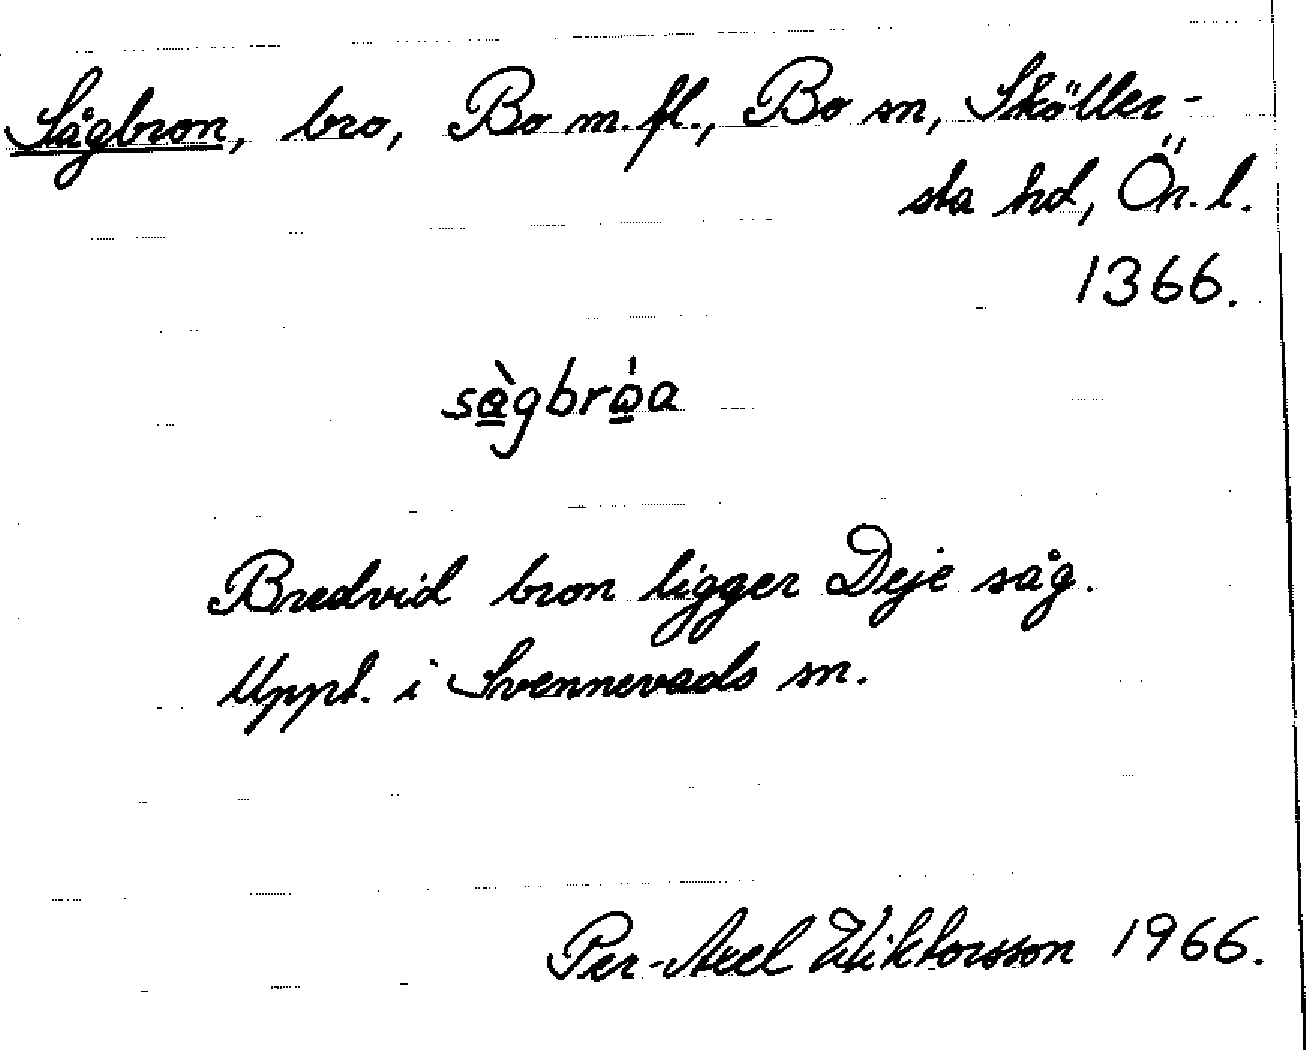 Sågbron, bro, Bo m.fl., Bo sn, Sköller-
sta hd, Ör. l.
1366.
sàgbróa
Bredvid bron ligger Deje såg.
Uppt. i Svennevads sn.
Per-Axel Wiktorsson 1966.